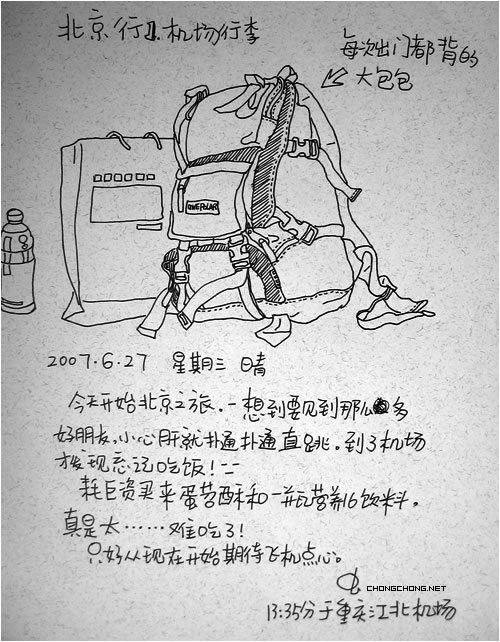 北京行1.机场行李
每次出门都背的
大包包
ONEPOLAR
2007.6.27 星期三 晴
今天开始北京之旅.一想到要见到那么多
好朋友,小心肝就扑通扑通直跳.到了机场
才发现忘记吃饭!--
耗巨资买来蛋苔酥和一瓶营养化饮料,
真是太……难吃了!
只好从现在开始期待飞机点心。
CHONGCHONG.NET
13:35分于重庆江北机场